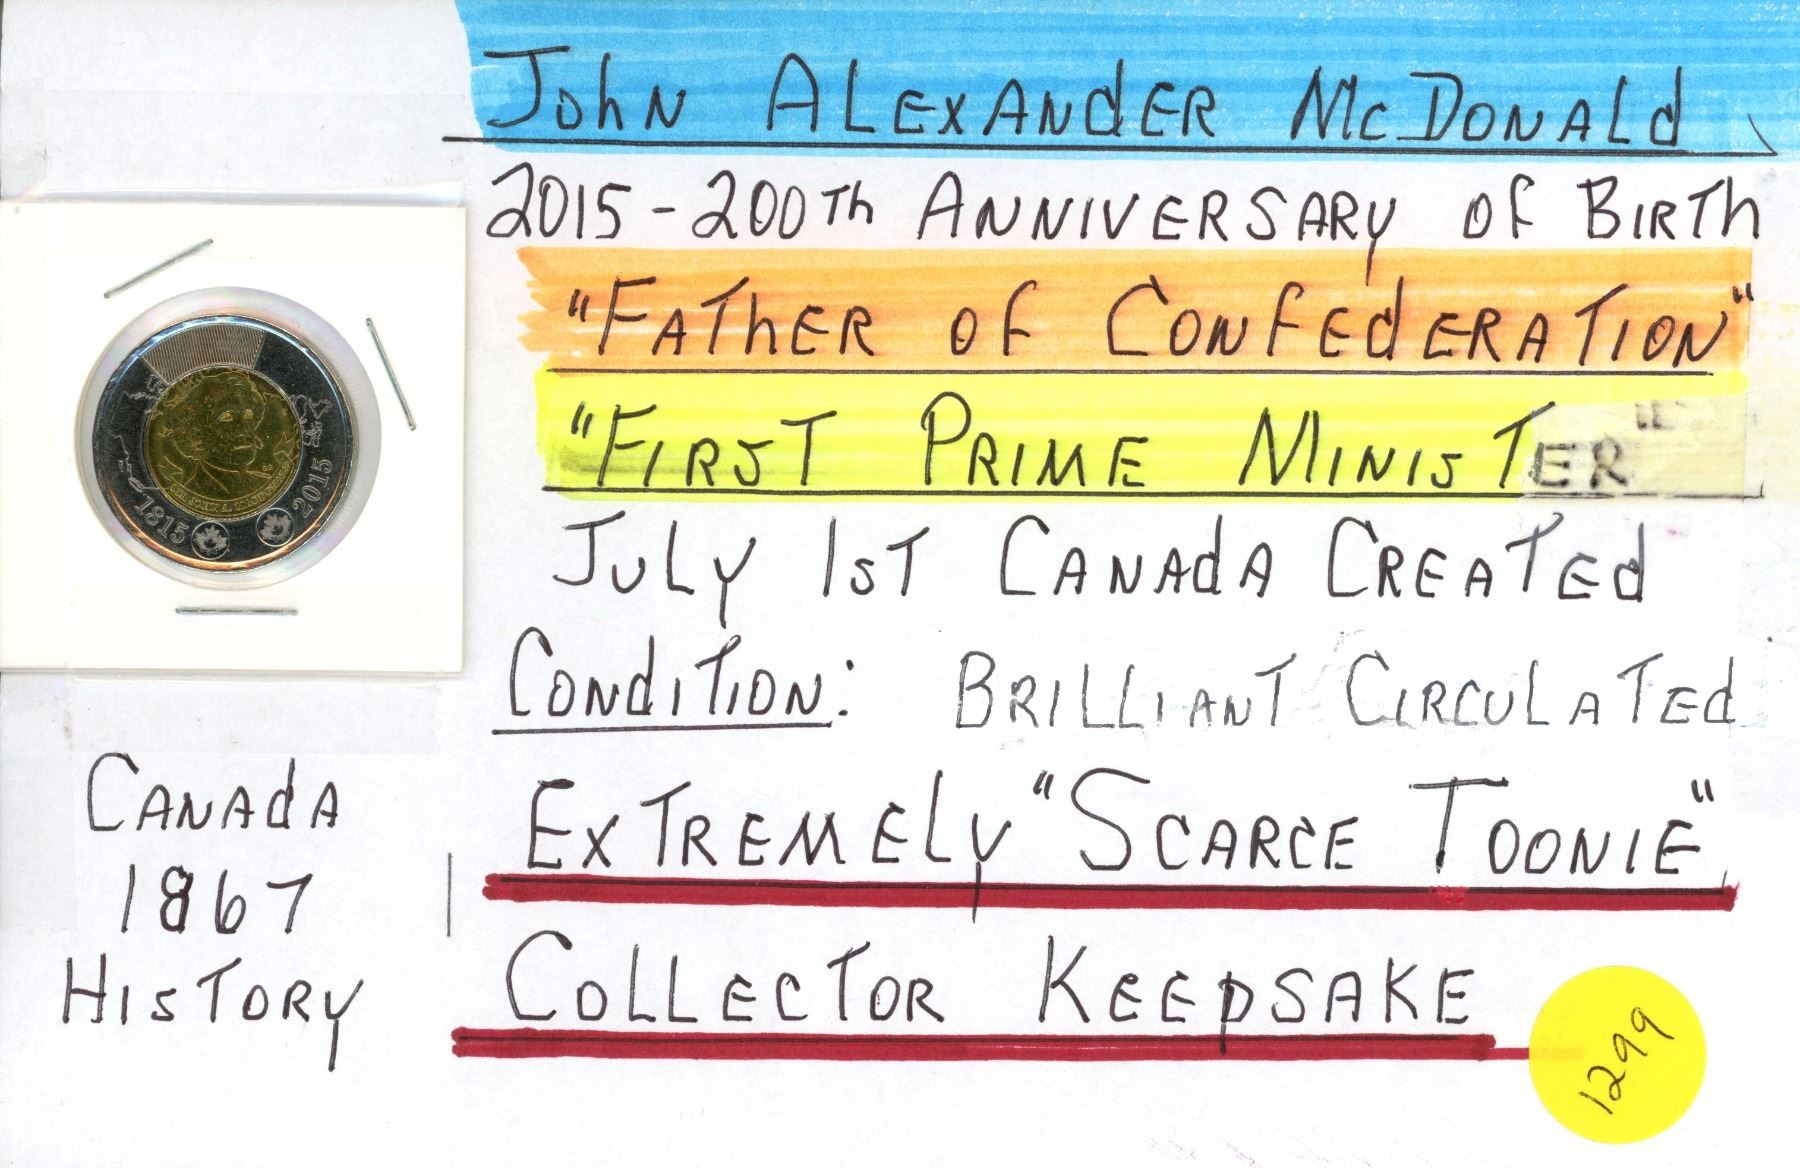 John Alexander McDonald
2015 - 200th Anniversary of Birth
"Father of Confederation"
"First Prime Minister"
July 1st Canada Created
Condition: Brilliant Circulated
Extremely "Scarce Toonie"
Collector Keepsake
1299
Canada
1867
History
SIR JOHN A. MACDONALD
1815 2015